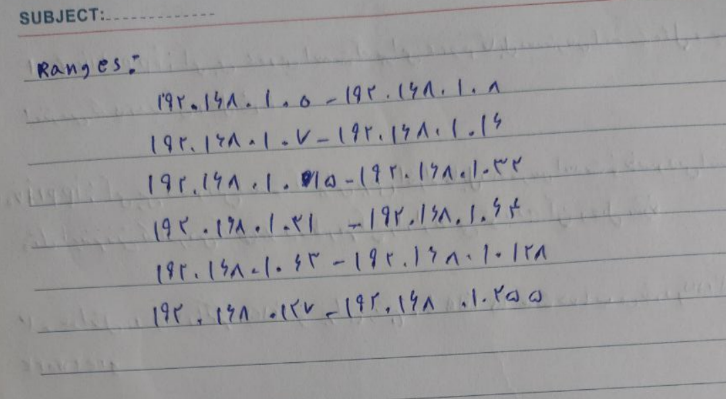 SUBJECT:
Ranges:
۱۹۲.۱۶۸.۱.۵ - ۱۹۲.۱۶۸.۱.۸
۱۹۲.۱۶۸.۱.۷ - ۱۹۲.۱۶۸.۱.۱۶
۱۹۲.۱۶۸.۱.۱۵ - ۱۹۲.۱۶۸.۱.۳۲
۱۹۲.۱۶۸.۱.۳۱ - ۱۹۲.۱۶۸.۱.۶۴
۱۹۲.۱۶۸.۱.۶۳ - ۱۹۲.۱۶۸.۱.۱۲۸
۱۹۲.۱۶۸.۱۲۷ - ۱۹۲.۱۶۸.۱.۲۵۵